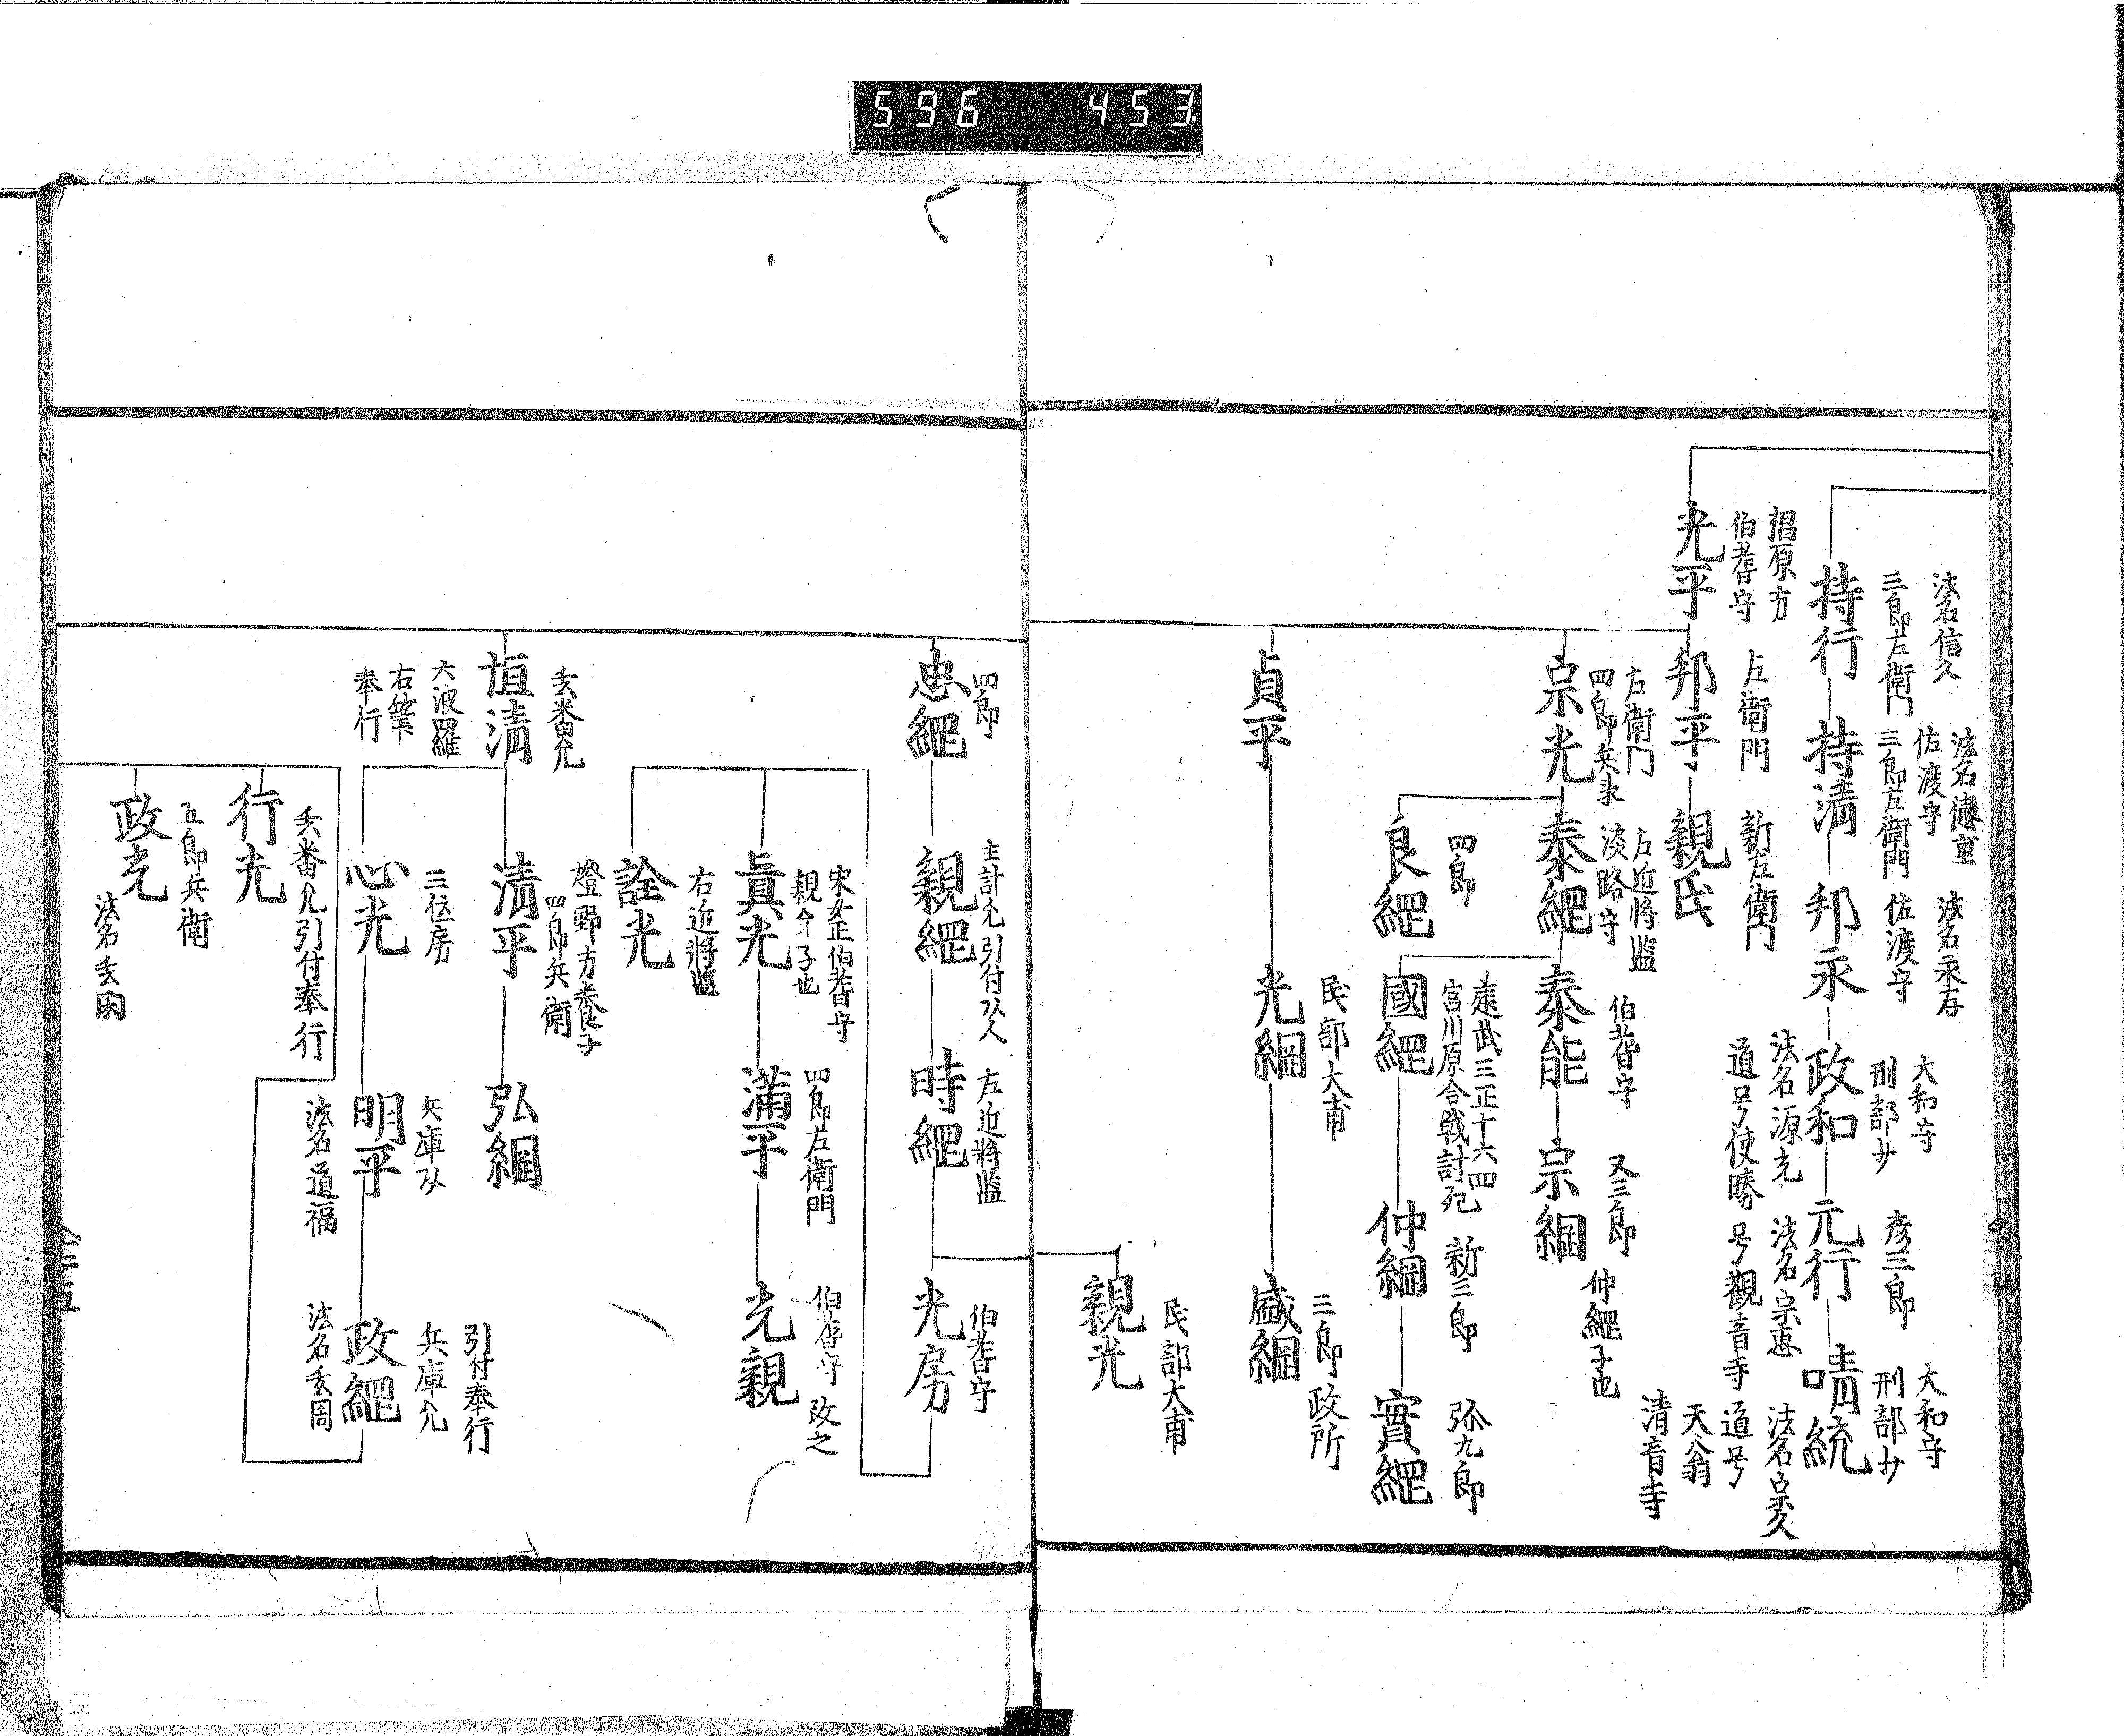 596 453
法名信久
三郎左衛門
持行
法名德重
佐渡守
三郎左衛門
持清
法名永存
佐渡守
邦永
大和守
刑部少
政和
法名源光
道号使勝
彦三郎
元行
法名宗恵
号觀音寺
大和守
刑部少
晴統
法名宗久
道号
天翁
清音寺
椙原方
伯耆守
光平
左衛門
邦平
新左衛門
親氏
左衛門
四郎兵
宗光
左近將監
淡路守
泰綱
伯耆守
泰能
又三郎
宗綱
仲綱子也
四郎
良綱
建武三正十六四
宮川原合戰討死
國綱
新三郎
仲綱
弥九郎
實綱
貞平
民部大甫
光綱
三郎政所
盛綱
民部大甫
親光
四郎
忠綱
主計允引付
親綱
左近將監
時綱
伯耆守
光房
采女正伯耆守
親子也
眞光
四郎左衛門
滿平
伯耆守 改之
光親
右近將監
詮光
恒清
六波羅
右筆
奉行
燈野方養子
四郎兵衛
清平
弘綱
三位房
心光
兵庫
明平
法名道福
引付奉行
兵庫允
政綱
法名玄周
玄番允引付奉行
行光
五郎兵衛
政光
法名玄